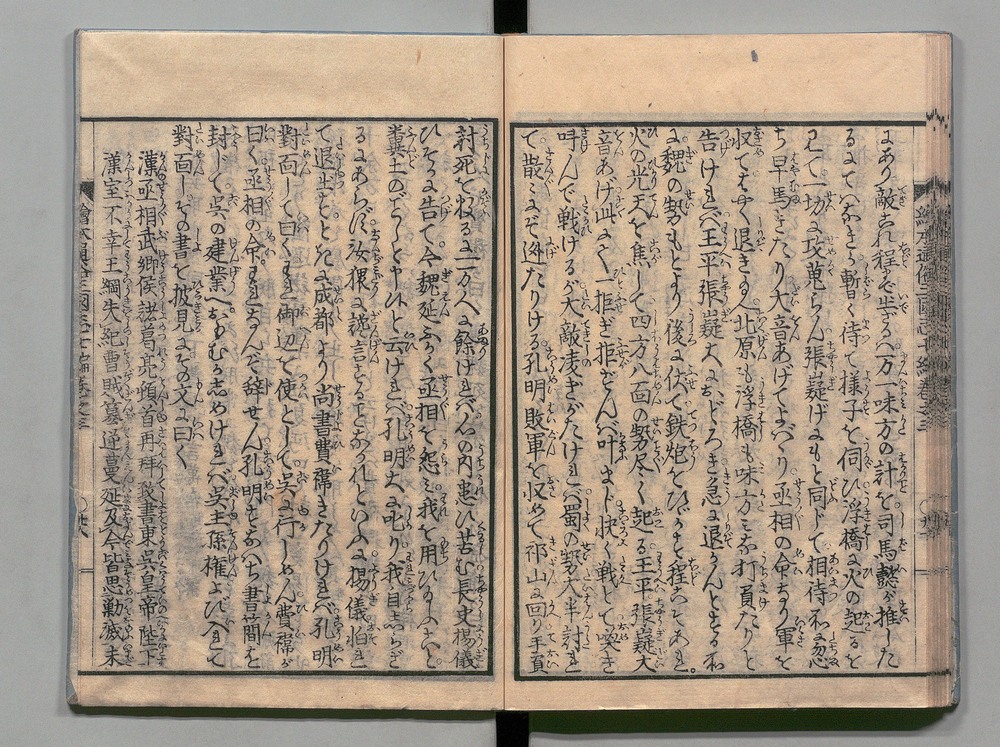 にあり敵これ程に歩るハ万一味方の計を司馬懿が推した
るにてハなきか暫く待て様子を伺ひ浮橋に火の起るを
見て一切に攻蒐らん張嶷げにもと同じて相待所に忽
ち早馬きたり大音あげてよバハり丞相の命あり軍を
収てはやく退き玉へ北原も浮橋も味方みな打負たりと
告けれバ王平張嶷大におどろき急に退かんとする所
に魏の勢もとより後に伏て鉄炮をひゞかせ程こそあれ
火の光天を焦して四方八面の勢尽く起る王平張嶷大
音あげ此にて一拒ぎ拒ぎせんバ叶まじ快く戦して喚き
叫んで戦けるが大敵凌ぎがたけれバ蜀の勢大半討れ
て散〻にぞ迯たりける孔明敗軍を収めて祁山に回り手負
討死を数るに一万人に余けれバ心の内患ひ苦む長史楊儀
ひそかに告て今魏延ふかく丞相を怨ミ我を用ひ玉ふこと
糞土のごとしと申ひと云けれバ孔明大に叱り我自しらざ
るにあらず汝猥に讒言することなかれといふに楊儀怕れ
て退出るときに成都より尚書費禕きたりけれバ孔明
對面して曰くわれ御辺を使として呉に行しめん費禕が
曰く丞相の命われなんぞ辞せん孔明すなハち書簡を
封して呉の建業へおもむかしめけれバ呉主孫権よび入れて
對面しその書を披見するにその文に曰く
漢丞相武郷侯諸葛亮頓首再拜致書東呉皇帝陛下
漢室不幸王綱失紀曹賊簒逆蔓延及今皆思勦滅未